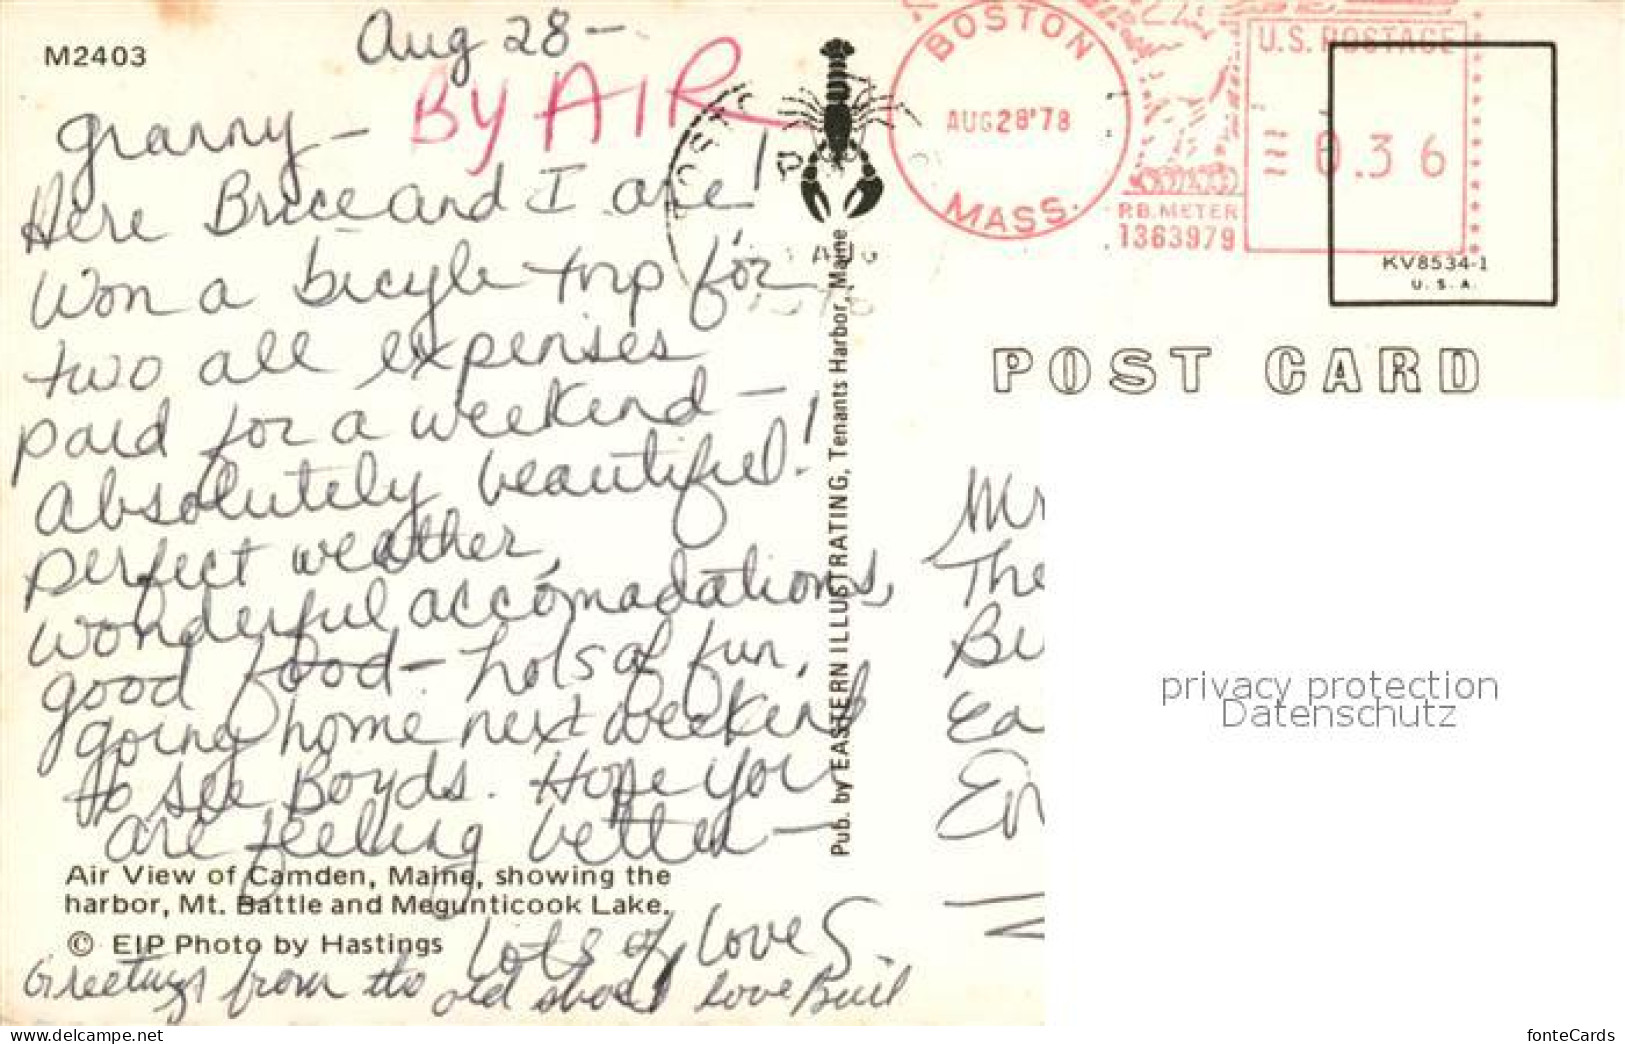 M2403
Aug 28 –
BY AIR
Granny –
Here Brice and I are!
Won a bicyle trip for
two all expenses
paid for a weekend –
Absolutely beautiful!
perfect weather,
wonderful accomadations,
good food – lots of fun.
going home next weekend
to see Boyds. Hope you
are feeling better –
Lots of love S.
Greetings from the old love
Air View of Camden, Maine, showing the
harbor, Mt. Battie and Megunticook Lake.
© EIP Photo by Hastings
Pub. by EASTERN ILLUSTRATING, Tenants Harbor, Maine
AUG
BOSTON
AUG28'78
MASS.
P.B. METER
1363979
U.S. POSTAGE
0.36
KV8534-1
U.S.A.
POST CARD
Mr
The
Bu
Ea
En
privacy protection
Datenschutz
www.delcampe.net
fonteCards